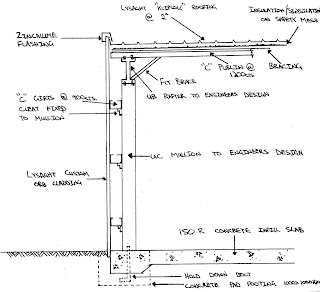 LYSAGHT "KLIPLOK" ROOFING
@ 2°
INSULATION/SISALATION
ON SAFETY MESH
ZINCALUME
FLASHING
BRACING
"C" PURLIN @
1200cts
FLY BRACE
UB RAFTER TO ENGINEERS DESIGN
"C" GIRTS @ 900cts.
CLEAT FIXED
TO MULLION
UC MULLION TO ENGINEERS DESIGN
LYSAGHT CUSTOM
ORB CLADDING
150 R. CONCRETE INFILL SLAB
HOLD DOWN BOLT
CONCRETE PAD FOOTING